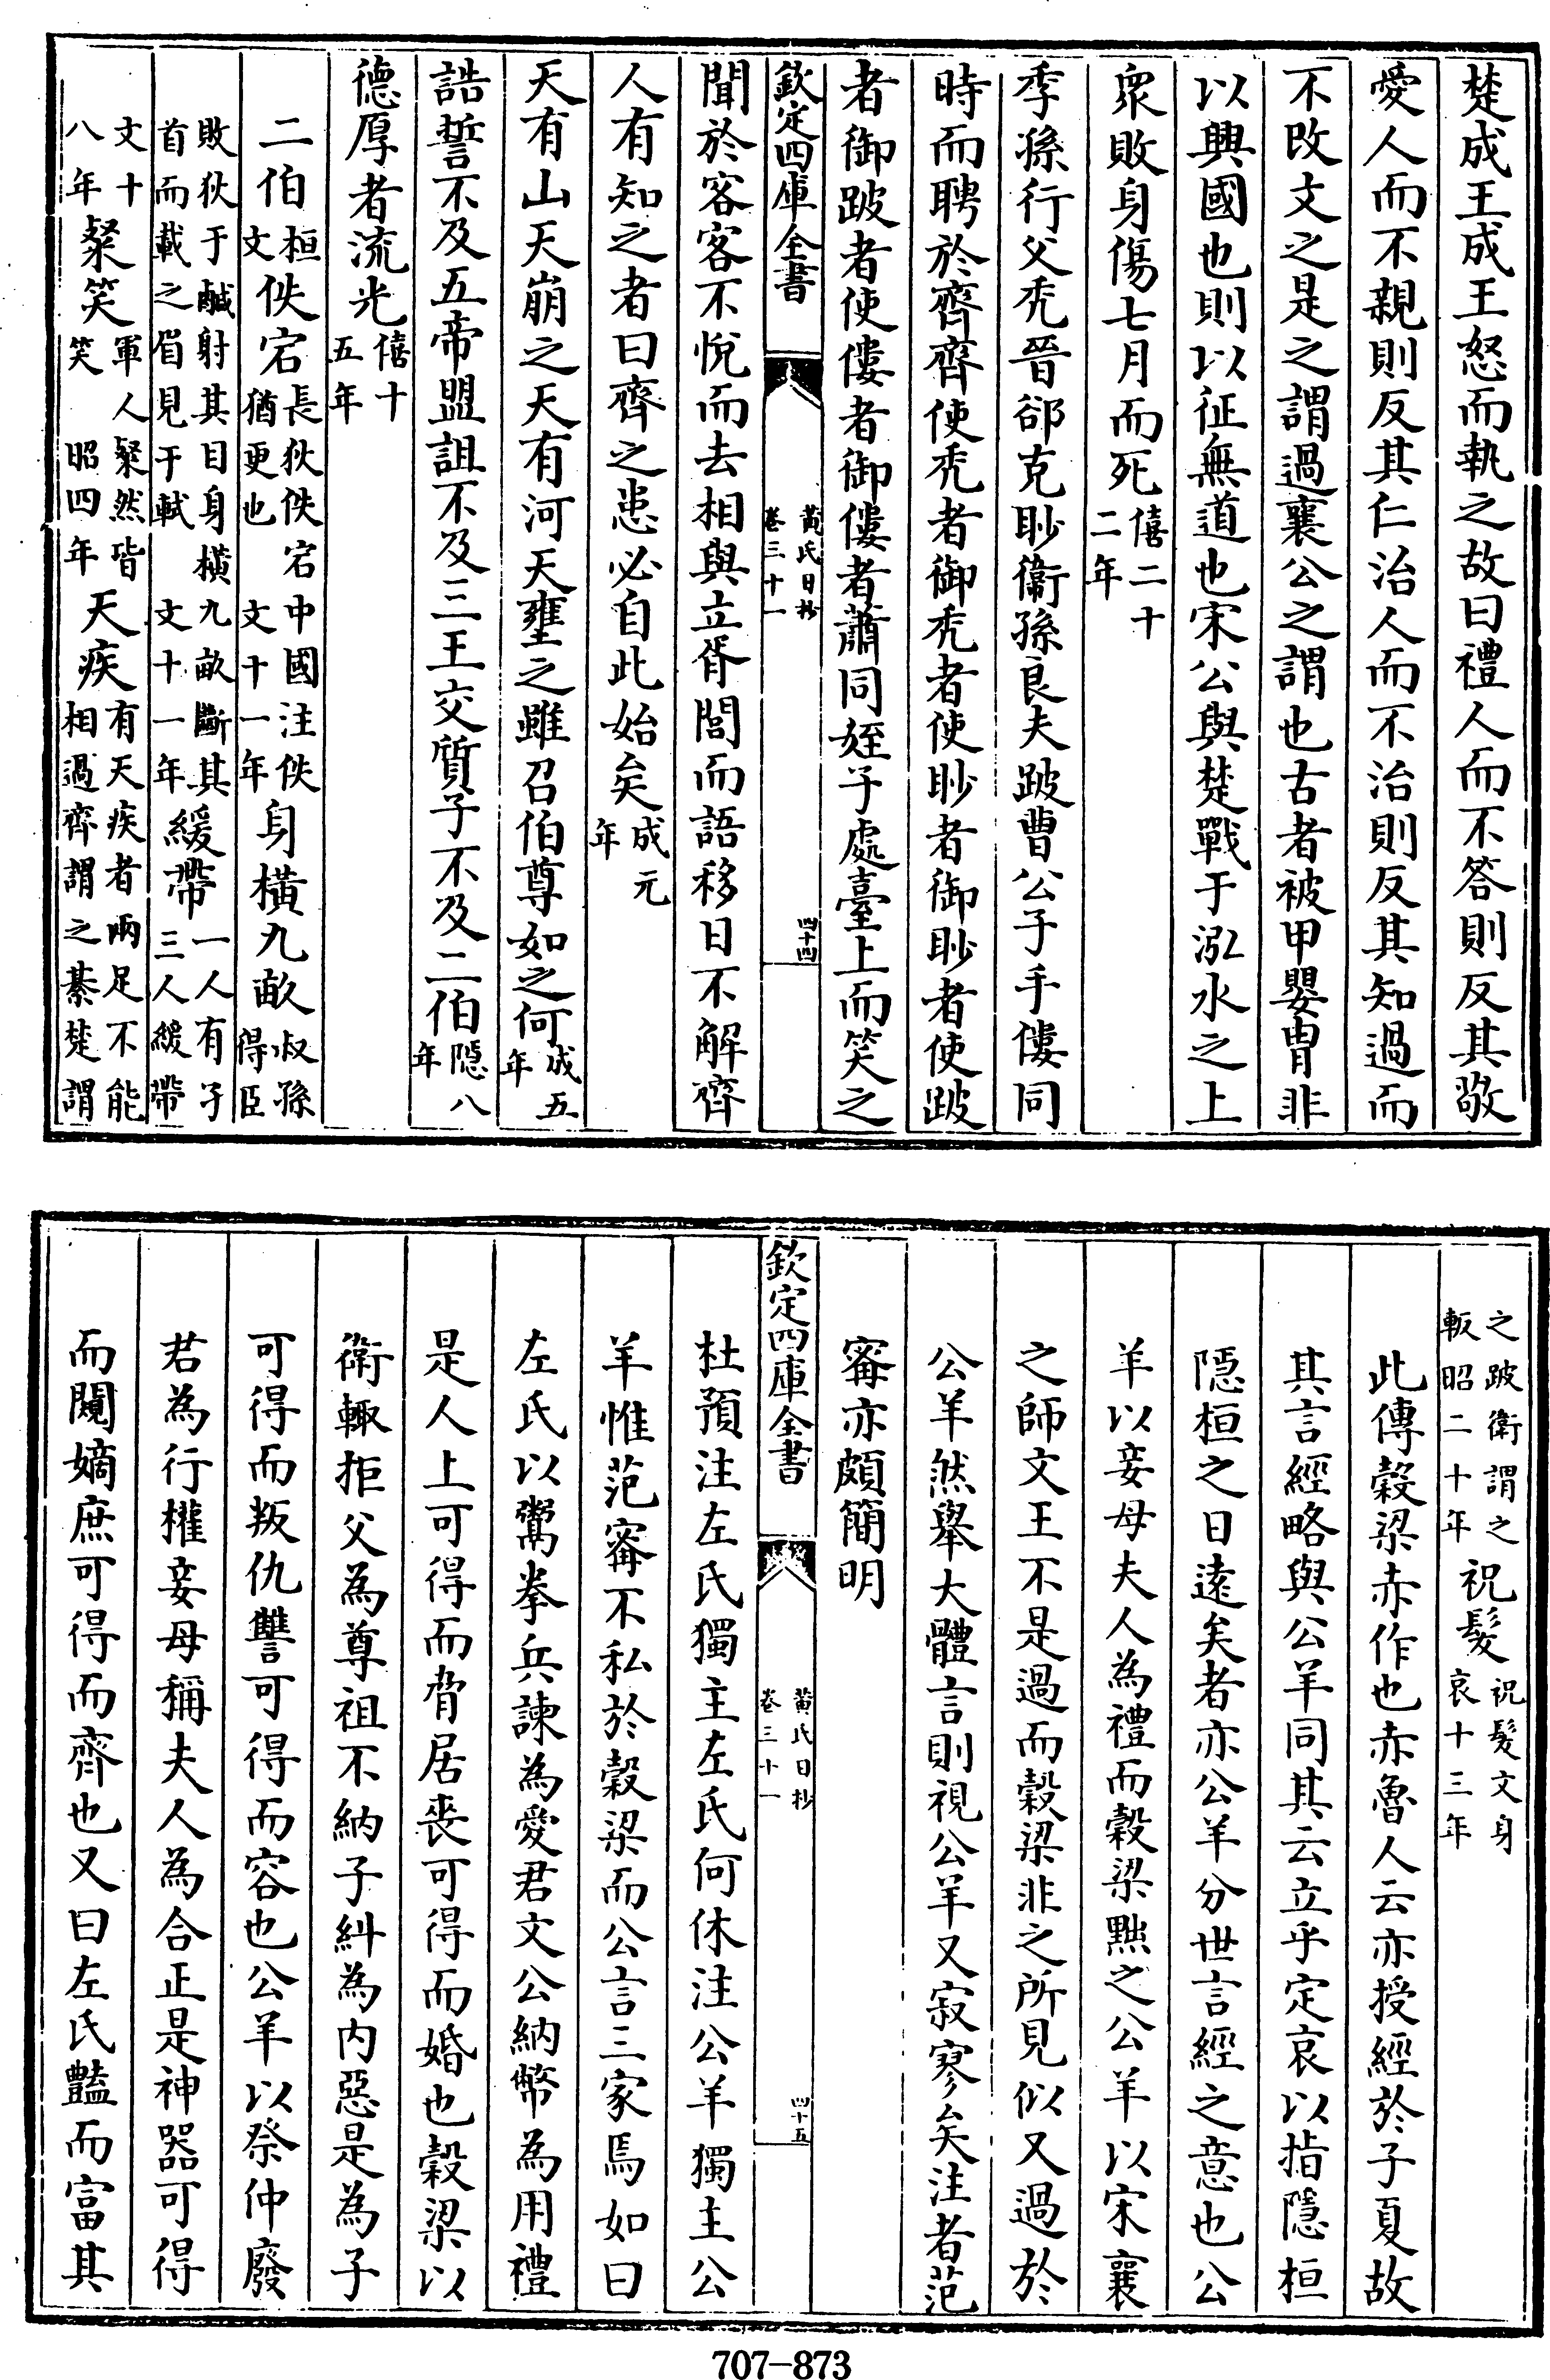 楚成王成王怒而執之故曰禮人而不答則反其敬
愛人而不親則反其仁治人而不治則反其知過而
不改文之是之謂過襄公之謂也古者被甲嬰胄非
以興國也則以征無道也宋公與楚戰于泓水之上
衆敗身傷七月而死僖二十二年
季孫行父禿晉郤克眇衛孫良夫跛曹公子手僂同
時而聘於齊齊使禿者御禿者使眇者御眇者使跛
者御跛者使僂者御僂者蕭同姪子處臺上而笑之
欽定四庫全書 黃氏日抄卷三十一 四十四
聞於客客不悅而去相與立胥閭而語移日不解齊
人有知之者曰齊之患必自此始矣成元年
天有山天崩之天有河天壅之雖召伯尊如之何成五年
誥誓不及五帝盟詛不及三王交質子不及二伯隱八年
德厚者流光僖十五年
二伯桓文佚宕長狄佚宕中國注佚猶更也文十一年身橫九畝叔孫得臣
敗狄于鹹射其目身橫九畝斷其首而載之眉見于軾文十一年緩帶一人有子三人緩帶
文十八年粲笑軍人粲然皆笑昭四年天疾有天疾者兩足不能相過齊謂之綦楚謂
之跛衛謂之輒昭二十年祝髮祝髮文身哀十三年
此傳穀梁赤作也赤魯人云亦授經於子夏故
其言經略與公羊同其云立乎定哀以指隱桓
隱桓之日遠矣者亦公羊分世言經之意也公
羊以妾母夫人為禮而穀梁黜之公羊以宋襄
之師文王不是過而穀梁非之所見似又過於
公羊然舉大體言則視公羊又寂寥矣注者范
甯亦頗簡明
欽定四庫全書 黃氏日抄卷三十一 四十五
杜預注左氏獨主左氏何休注公羊獨主公
羊惟范甯不私於穀梁而公言三家焉如曰
左氏以鬻拳兵諫為愛君文公納幣為用禮
是人上可得而脅居喪可得而婚也穀梁以
衛輒拒父為尊祖不納子糾為內惡是為子
可得而叛仇讐可得而容也公羊以祭仲廢
君為行權妾母稱夫人為合正是神器可得
而闚嫡庶可得而齊也又曰左氏豔而富其
707-873